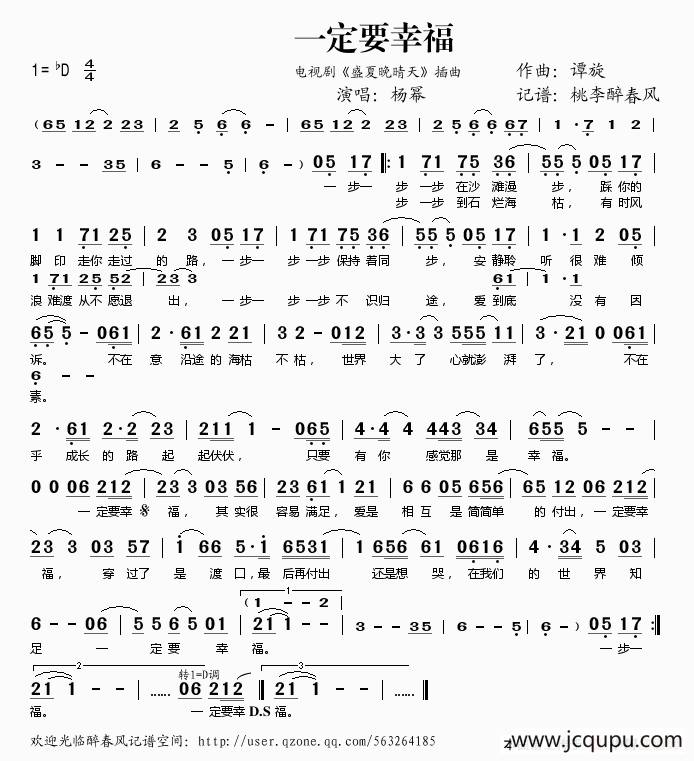 一定要幸福
1=♭D 4/4
电视剧《盛夏晚晴天》插曲 作曲：谭旋
演唱：杨幂 记谱：桃李醉春风
（65 12 2 23 | 2 5 6 6 - | 65 12 2 23 | 2·5 6·6 67 | 1 ·7 1 2 |
3 - - 35 | 6 - - 5 | 6 - ）05 17 ‖: 1 71 75 36 | 55 5 05 17 |
一步一 步 一步 在沙 滩漫 步， 踩 你的
步 一步 到石 烂海 枯， 有 时风
1 1 71 25 | 2 3 05 17 | 1 71 75 36 | 55 5 05 17 | 1·1 2 05 |
脚 印 走你 走过 的 路， 一步一 步 一步 保持 着同 步， 安 静聆 听 很 难 倾
1 71 25 52 | 23 3 61 | 1·1
浪 难渡 从不 愿退 出， 一步一 步 一步 不 识归 途， 爱 到底 没 有 因
65 5 - 061 | 2·61 2 21 | 3 2 - 012 | 3·3 3 555 11 | 3·21 0 061 |
诉。 不在 意 沿途的 海枯 不 枯， 世界 大 了 心就澎 湃 了， 不在
6 -
素。
2·61 2·2 23 | 211 1 - 065 | 4·4 4 443 34 | 655 5 - - |
乎 成长 的 路 起 起伏伏， 只要 有 你 感觉那 是 幸 福。
0 0 06 212 | 23 3 03 56 | 23 61 1 21 | 6 6 05 656 | 65 12 06 212 |
一定要幸 𝄋 福， 其 实很 容易 满足， 爱是 相 互 是 简简单 的 付出，一 定要幸
23 3 03 57 | 1 166 5·1 6531 | 1 656 61 0616 | 4·34 3 03 |
福， 穿 过了 是 渡 口，最 后再付出 还是想 哭，在我们 的 世 界 知
1.
(1 - - 2
6 - - 06 | 5 5 65 01 | 21 1 - - | 3 - - 35 | 6 - - 5 | 6 - ）05 17 :‖
足 一 定 要 幸 福。 一步一
2. 转1=D调 3.
21 1 - - | …… 06 212 ‖ 21 1 - - | …… ‖
福。 一 定要幸 D.S 福。
欢迎光临醉春风记谱空间：http://user.qzone.qq.com/563264185
www.jcqupu.com